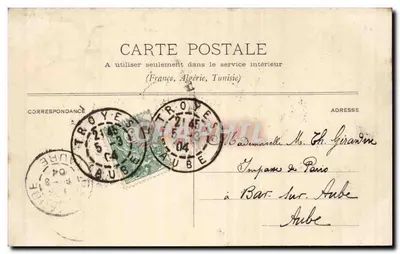 CARTE POSTALE
A utiliser seulement dans le service intérieur
(France, Algérie, Tunisie)
CORRESPONDANCE
ADRESSE
TROYES
21 45
5 - 3
04
AUBE
TROYES
21 45
04
AUBE
Mademoiselle M. Th. Girardin
Impasse de Paris
à Bar-sur-Aube
Aube
04